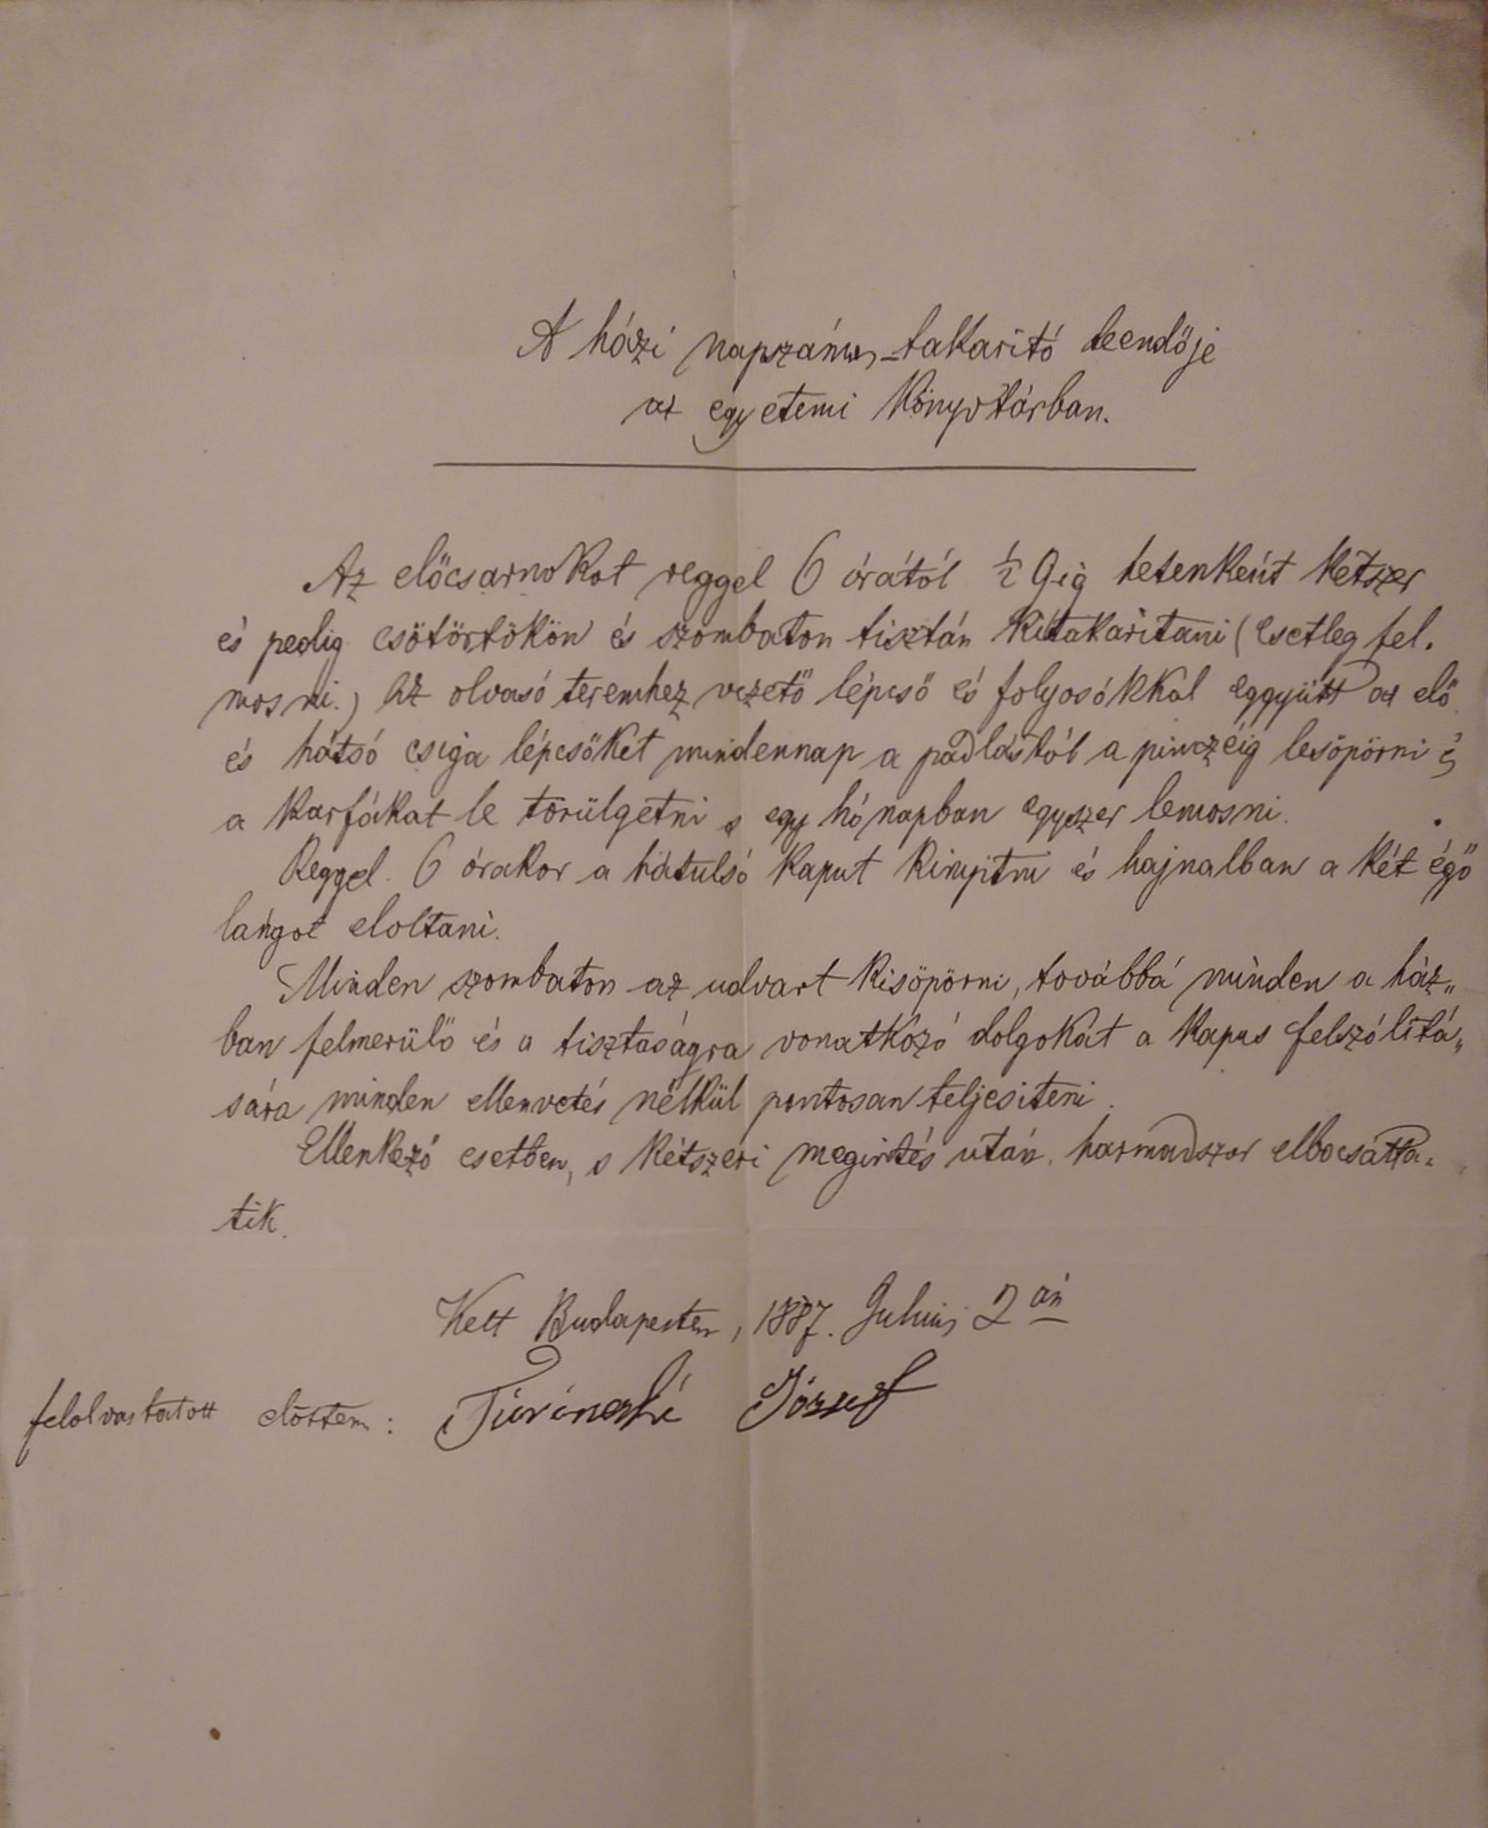 A házi napszámos-takaritó teendője
az egyetemi Könyvtárban.
Az előcsarnokot reggel 6 órától ½ 9 ig hetenként kétszer
és pedig csötörtökön és szombaton tisztán kitakaritani (esetleg fel-
mosni.) Az olvasó teremhez vezető lépcső és folyosókkal eggyütt az elő
és hátsó csiga lépcsőket mindennap a padlástól a pinczéig lesöpörni és
a karfákat le törülgetni s egy hónapban egyszer lemosni.
Reggel 6 órakor a hátulsó kaput kinyitni és hajnalban a két égő
lángot eloltani.
Minden szombaton az udvart kisöpörni, továbbá minden a ház„
ban felmerülő és a tisztaságra vonatkozó dolgokat a kapus felszólitá„
sára minden ellenvetés nélkül pontosan teljesiteni.
Ellenkező esetben, s kétszeri megintés után harmadszor elbocsátta-
tik.
Kelt Budapesten, 1887. Julius 2 án
felolvastatott előttem: József